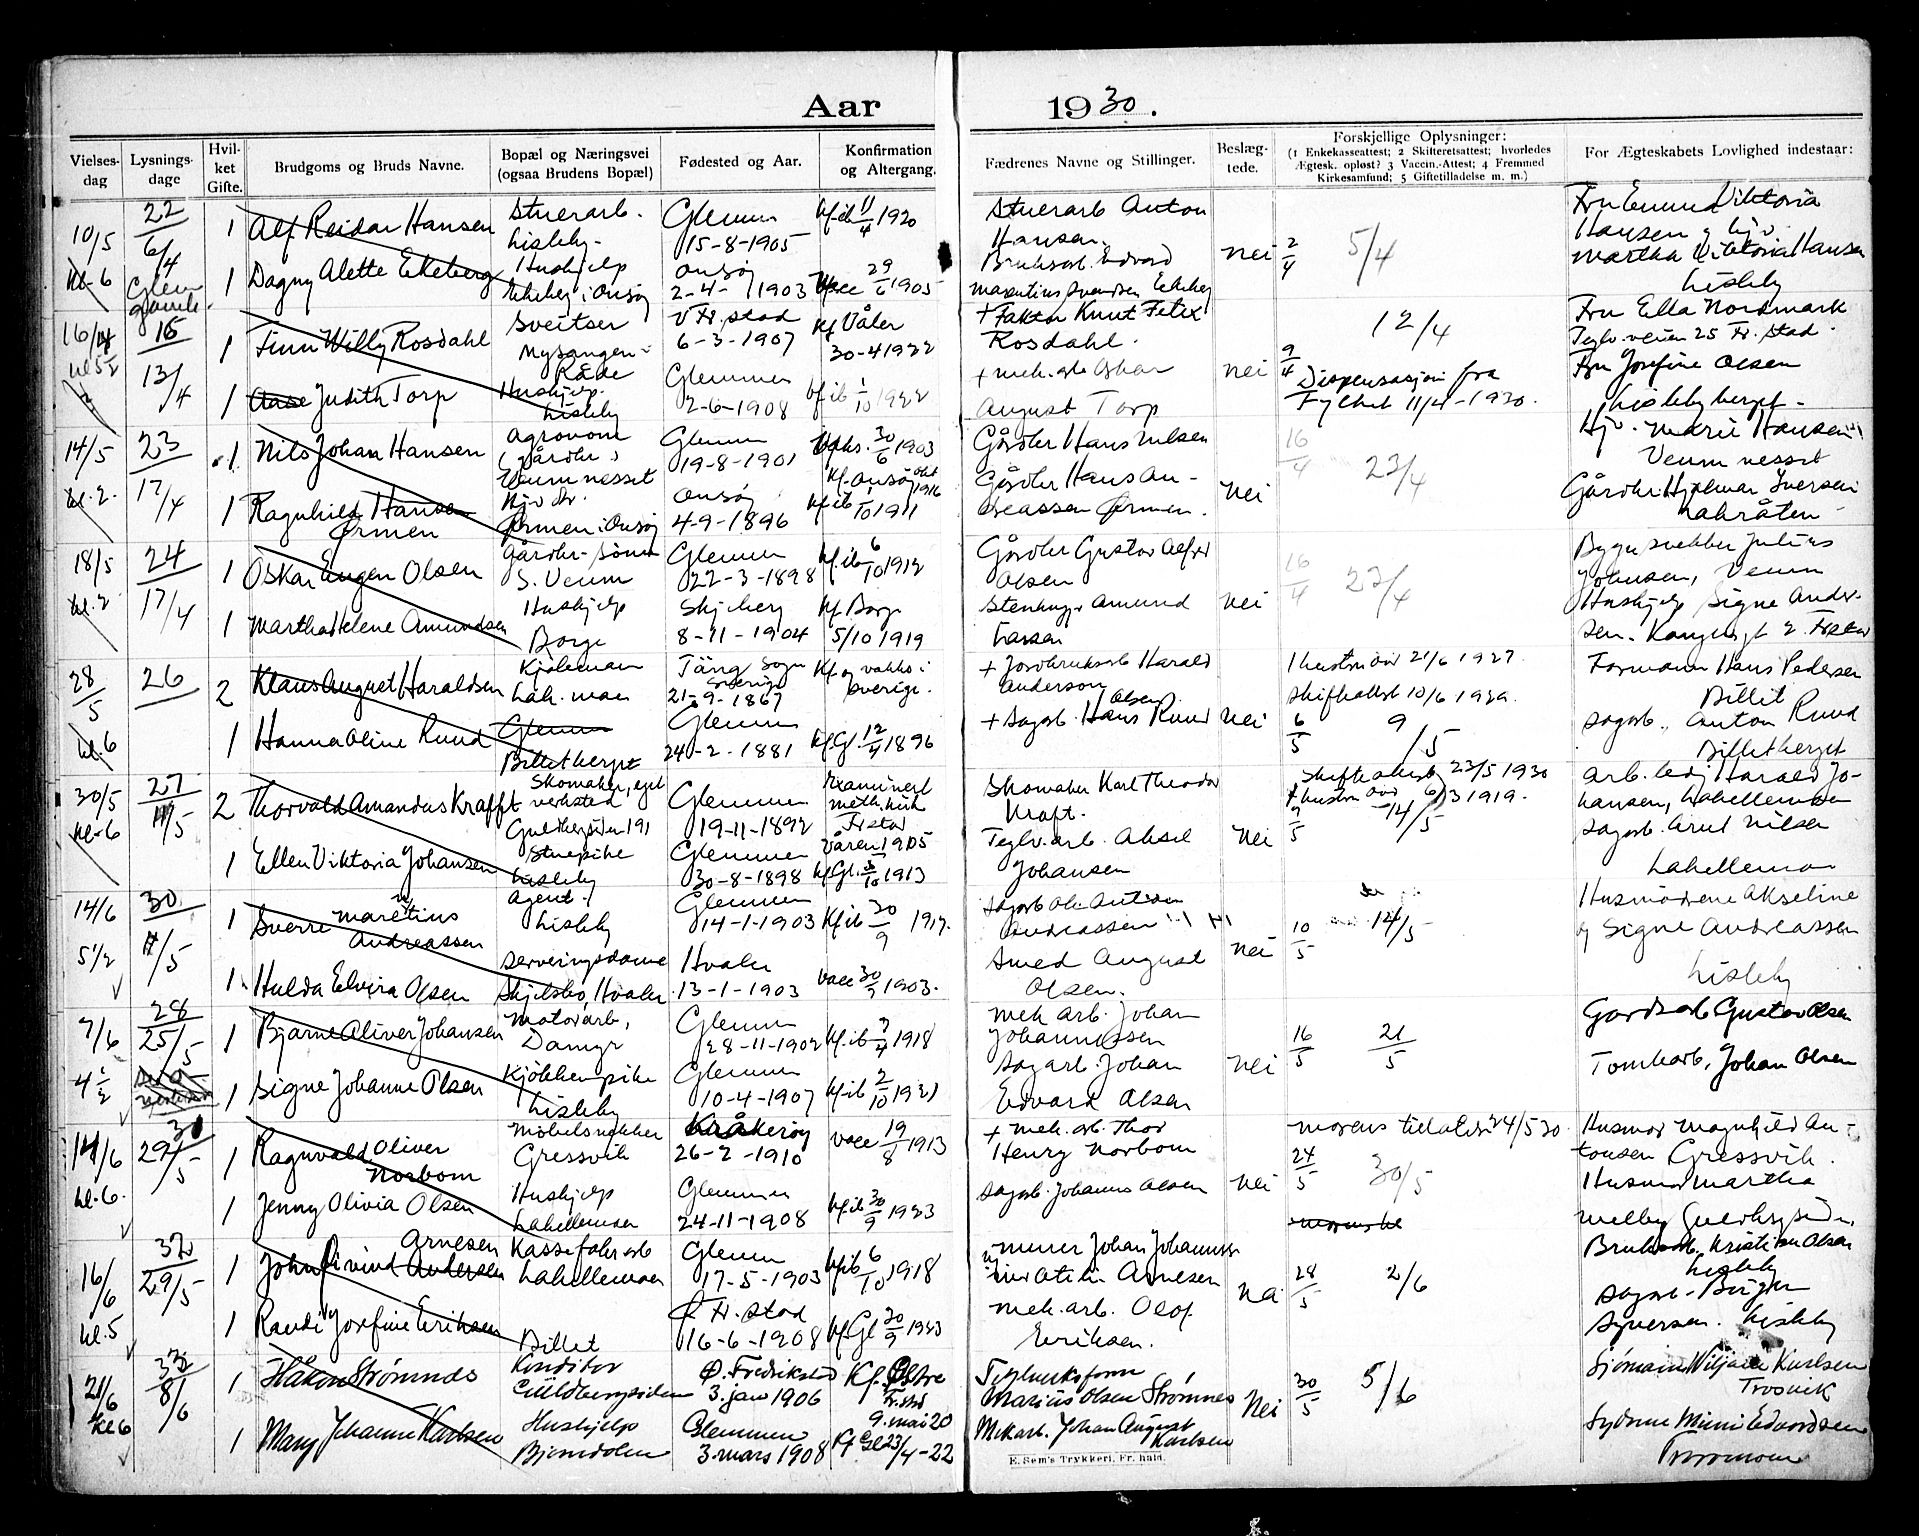 Aar 1930.
Vielses-dag
Lysnings-dage
Hvil-ket Gifte.
Brudgoms og Bruds Navne.
Bopæl og Næringsvei (ogsaa Brudens Bopæl)
Fødested og Aar.
Konfirmation og Altergang.
Fædrenes Navne og Stillinger.
Beslæg-tede.
Forskjellige Oplysninger:
(1 Enkekasseattest; 2 Skifteretsattest; hvorledes
Ægtesk. opløst? 3 Vaccin.-Attest; 4 Fremmed
Kirkesamfund; 5 Giftetilladelse m. m.)
For Ægteskabets Lovlighed indestaar:
10/5 22 6/4 1 Alf Reidar Hansen Stuerarb. Lisleby. Glemmen 15-8-1905 Kf. ib 11/4 1920 Stuerarb Anton Hansen. nei 2/4 5/4
Hansen
kl. 6 1 Dagny Alette Ekeberg Hushjelp Ekeberg i Onsøy Onsøy 2-4-1903 29/6 1905 Edvard Martha Viktoria Hansen Lisleby
16/4 15 13/4 1 Finn Willy Rosdahl Sveitser Mysangen Råde V Fr.stad 6-3-1907 Kf Våler 30-4 1922 + Faktor Knut Felix Rosdahl. nei 9/4 12/4 Fru Ella Nordmark Teglv. veien 25 Fr. stad
1 Aase Judith Torp Hushjelp. Lisleby Glemmen 2-6-1908 Kf ib 1/10 1922 + mek. arb Oskar August Torp Dispensasjon fra Fylket 11/4-1930. Fru Josefine Olsen Lislebyberget
14/5 23 17/4 1 Nils Johan Hansen Agronom Gårdbr. Veum nesset Glemmen 19-8-1901 30/6 1903 Kf. Onsøy 1916 Gårdbr Hans Nilsen nei 16/4 23/4 Marie Hansen Veum nesset
kl. 2. 1 Ragnhild Hansen Ørmen Ørmen i Onsøy Onsøy 4-9-1896 Kf ib 1/10 1911 Gårdbr Hans Andreassen Ørmen. Gårdbr Hjalmar Iversen
18/5 24 17/4 1 Oskar Eugen Olsen Gårdbr-sønn S. Veum Glemmen 22-3-1898 Kf. ib 6/10 1912 Gårdbr Gustav Alfred Olsen nei 16/4 23/4 Julius Johnsen, Veum
kl. 2 1 Martha Helene Amundsen Hushjelp Borge Skjeberg 8-11-1904 Kf Borge 5/10 1919 Stenhugger Amund Larsen Hushjelp Signe Andersen.
28/5 26 2 Klaus August Haraldsen Kjøleman Lah. moen Tång sogn Sverige 21-9-1867 Kf og vakks. i Sverige. + Jordbruksarb Harald Anderson 1 hustru død 21/6 1927. Skifteattest 10/6 1929. Formann Hans Pedersen Billit
kl. 6 1 Hanna Oline Ruud Glemmen Billetberget Glemmen 24-2-1881 Kf. Gl. 12/4 1896 + Sagarb. Hans Olsen Ruud nei 6/5 9/5 Sagarb., Anton Ruud Billetberget
30/5 27 11/5 2 Thorvald Amandus Krafft Skomaker, eget verksted Guldbergsiden 191 Glemmen 19-11-1892 Examinert meth. kirk Frstad Våren 1905 Skomaker Karl Theodor Kraft. Skifteattest 23/5 1930 hustru død 6/3 1919. 9/5 14/5 Harald Johansen, Lahellemoen
kl. 6 1 Ellen Viktoria Johansen Stuepike Lisleby Glemmen 30-8-1898 Kf Gl. 5/10 1913 Teglv. arb. Aksel Johansen nei Sagarb. Arnt Nilsen Lahellemoen
14/6 30. 11/5 1 Sverre Maretius Andreassen Agent. Lisleby Glemmen 14-1-1903 Kf ib 30/9 1917. Sagarb. Andreassen nei 10/5 14/5 Husmødrene Akseline og Signe Andreassen Lisleby
5 1/2 1 Hulda Elvira Olsen Serveringsdame Skjelsbo, Hvaler Hvaler 13-1-1903 vacc 30/9 1903. Smed August Olsen.
7/6 28 25/5 1 Bjarne Oliver Johansen Motorarb, Damyr Glemmen 28-11-1902 Kf. ib 7/4 1918 Mek arb. Johan Johannessen nei 16/5 21/5 Gardsarb Gustav Olsen
4 1/2 1 Signe Johanne Olsen Kjøkkenpike Lisleby Glemmen 10-4-1907 Kf. ib 2/10 1921 Sagarb. Johan Edvard Olsen Tomtearb, Johan Olsen
14/6 31 29/5 1 Ragnvald Oliver Norbom Møbelsnekker Gressvik Kråkerøy 26-2-1910 vacc 19/8 1913 + mek. arb. Thor Henry Norbom Morens tillatelse 24/5 30. Husmor Magnhild Antonsen Gressvik.
kl. 6. 1 Jenny Olivia Olsen Hushjelp Lahellemoen Glemmen 24-11-1908 Kf. ib 30/9 1923 Sagarb. Johannes Olsen nei 24/5 30/5 Husmor Martha Melby
16/6 32 29/5 1 John Eivind Andersen Arnesen Lahellemoen Glemmen 17-5-1903 Kf ib 6/10 1918 Murer Johan Johannessen Arnesen 28/5 2/6 Kristian Olsen Lisleby
kl. 5 1 Randi Josefine Eriksen Billet Ø Fr. stad 16-6-1908 Kf. Gl 30/9 1923 Mek. arb. Olof Eriksen. Sagarb. Birger Syversen. Lisleby
21/6 33 8/6 1 Håkon Strømnes Konditor Guldbergsiden Ø. Fredrikstad 3. jan 1906 Kf. Østre Fr.stad 9. mai 20 Marius Olsen Strømnes Nei 30/5 5/6 Sjømann Viljam Karlsen Trosvik
kl 6 1 Mary Johanne Karlsen Hushjelp Bjørndalen Glemmen 3. mars 1908 Kf Gl 23/4-22 Mek arb. Johan August Karlsen Mimi Edvardsen
E. Sem's Trykkeri, Fr. hald.